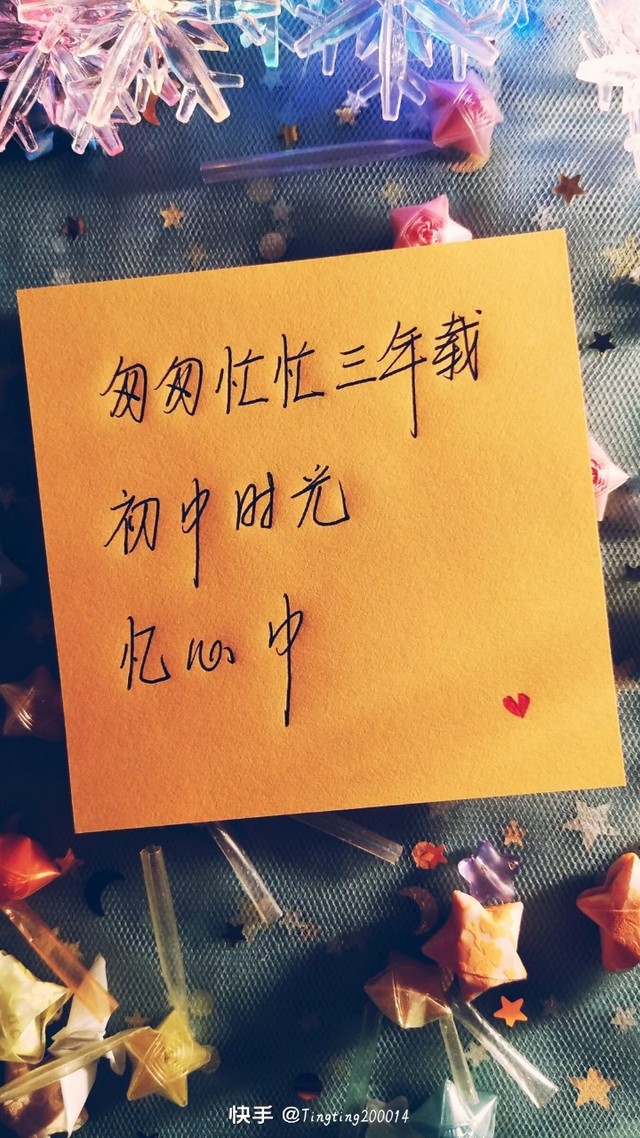 匆匆忙忙三年载
初中时光
忆心中
快手 @Tingting200014